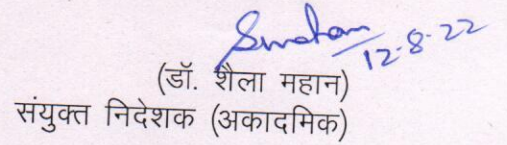 Smahan
12-8-22
(डॉ. शैला महान)
संयुक्त निदेशक (अकादमिक)